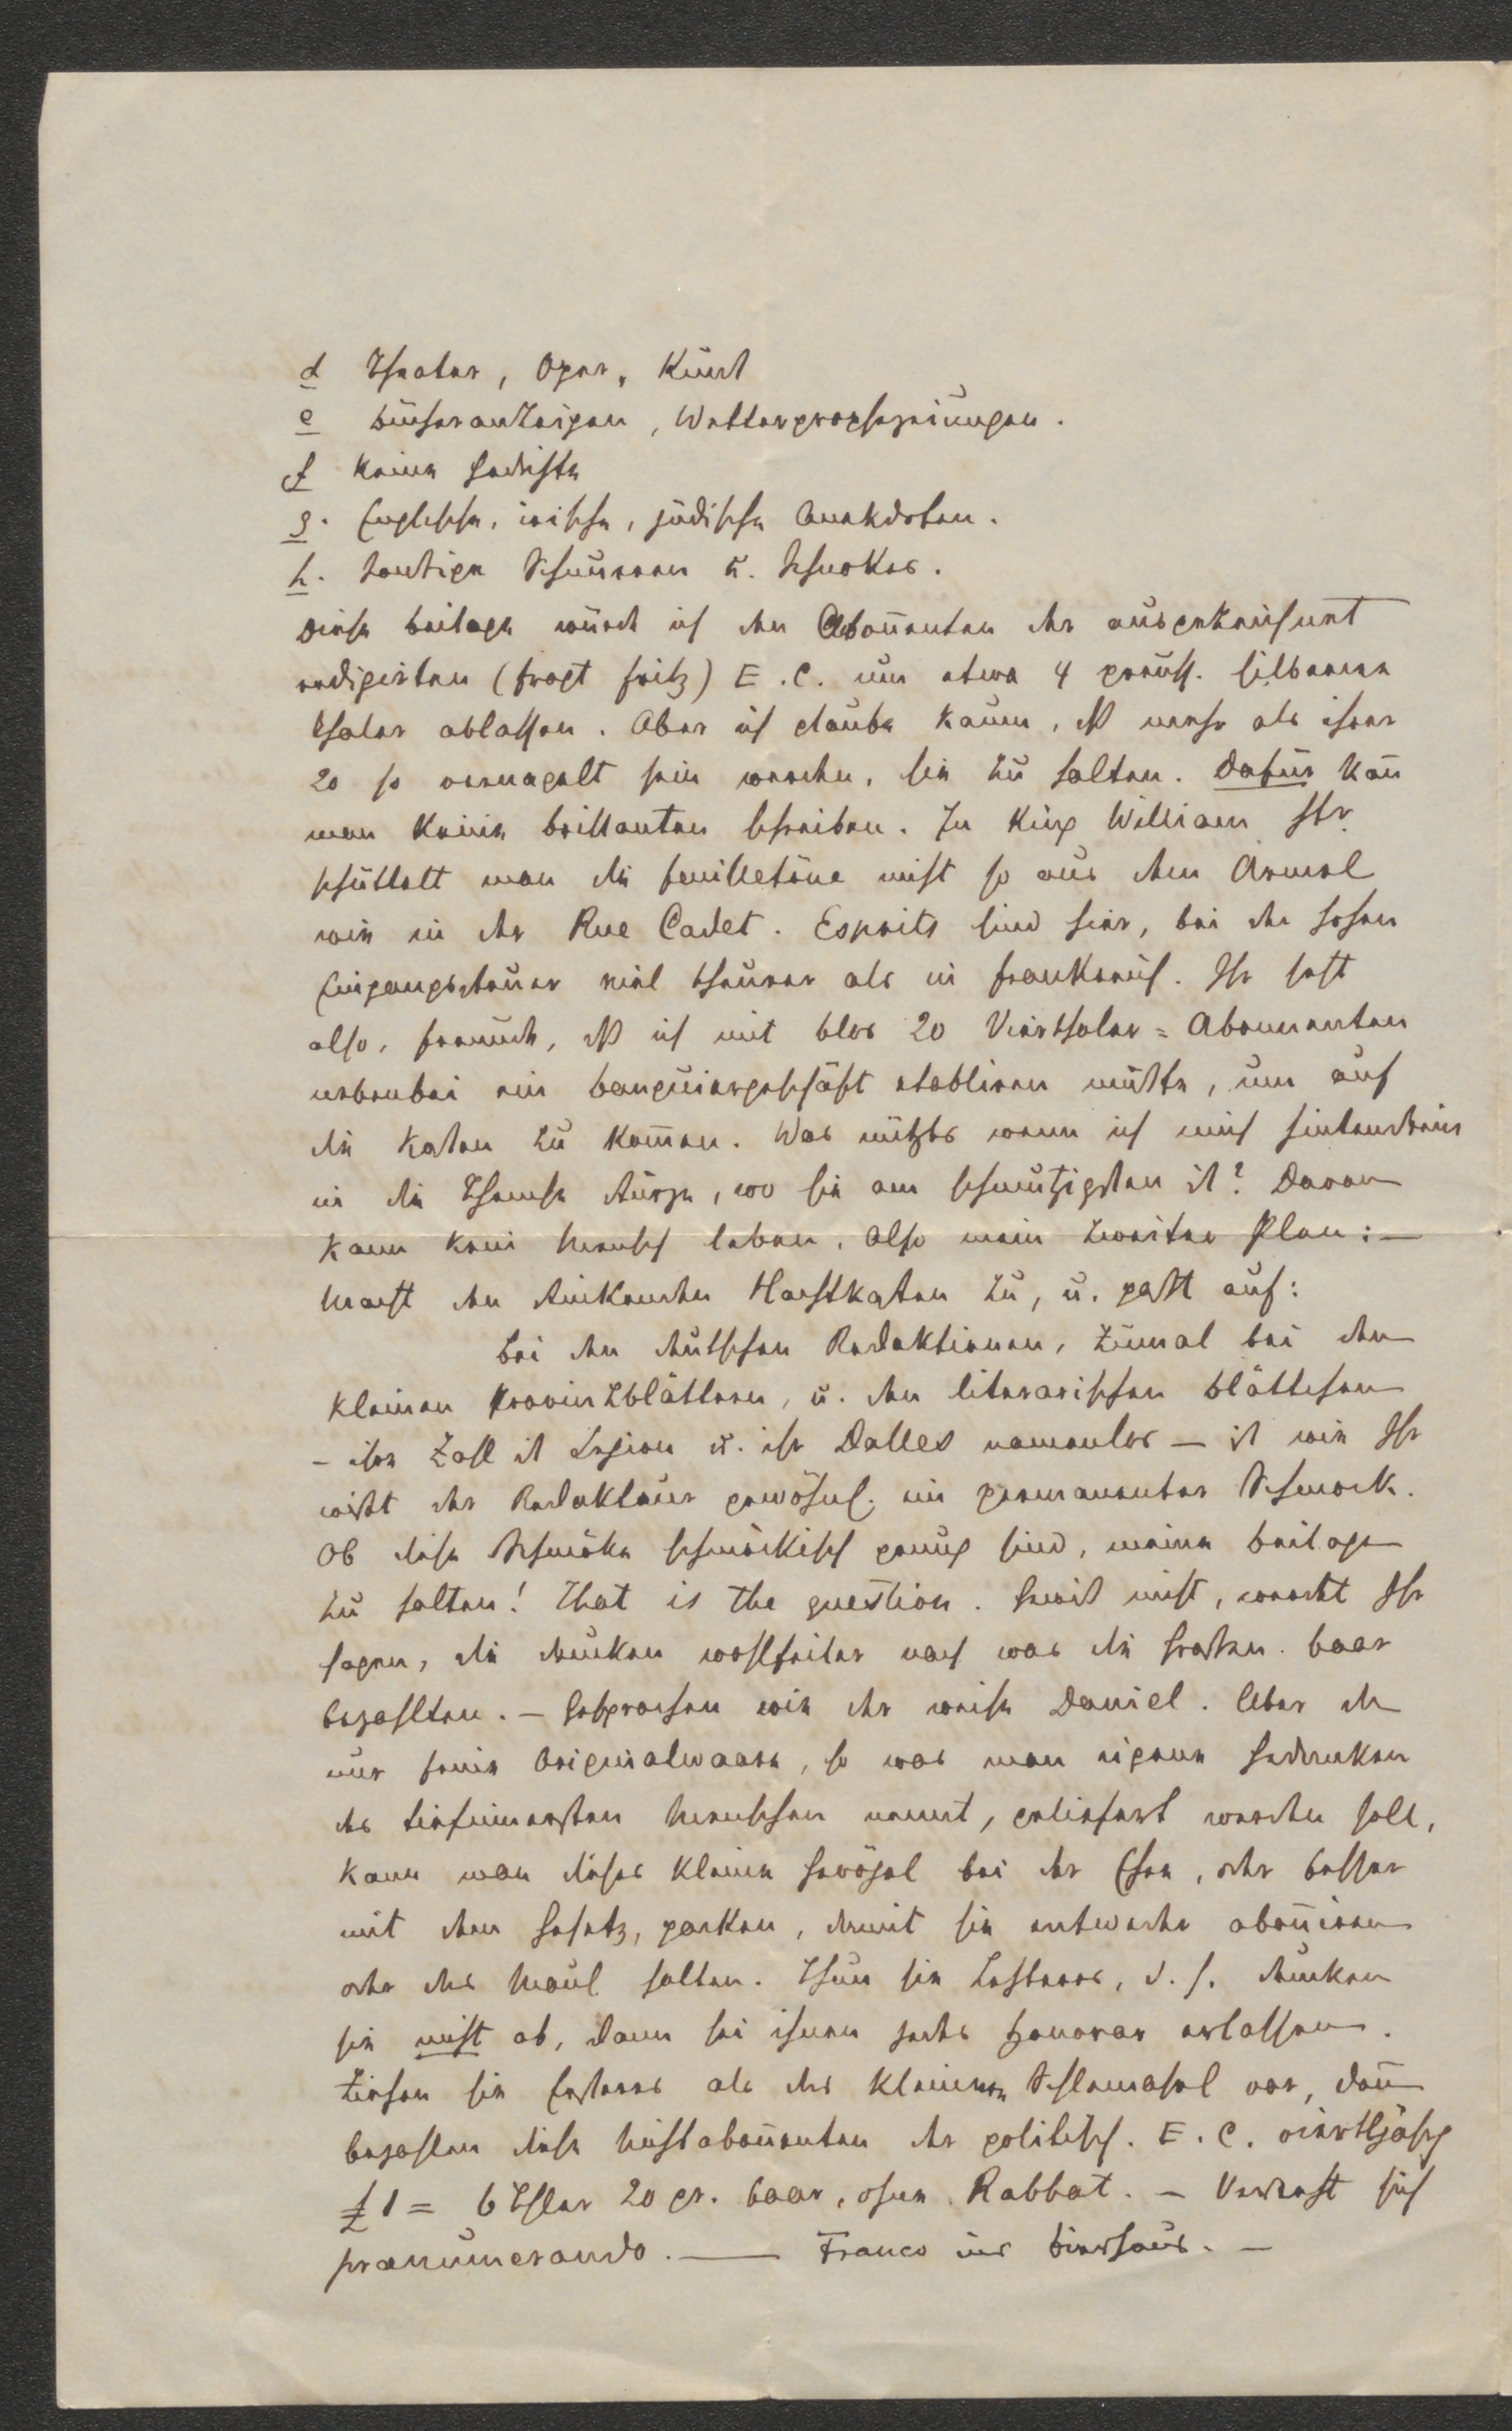 d Theater, Oper, Kunst
e Bücheranzeigen, Wetterprophezeiungen.
f Keine Gedichte
g. Englische, irische, jüdische Anekdoten.
h. Sonstige Schnurren u. Schnokes.
Diese Beilage würde ich den Abonnenten der ausgezeichnet
redigirten (fragt Fritz) E.C. um etwa 4 preuß. silberne
Thaler ablassen. Aber ich glaube kaum, daß mehr als ihrer
20 so vernagelt sein werden, sie zu halten. Dafür kan̄
man keine brillanten schreiben. In King William Str.
schüttelt man die Feuilletone nicht so aus dem Aermel
wie in der Rue Cadet. Esprits sind hier, bei der hohen
Eingangssteuer viel theurer als in Frankreich. Ihr seht
also, Freunde, daß ich mit blos 20 Vierthaler=Abonnenten
nebenbei ein Banquiergeschäft etabliren müßte, um auf
die Kosten zu kom̄en. Was nützts wenn ich mich hintendrein
in die Themse stürze, wo sie am schmutzigsten ist? Davon
kann kein Mensch leben. Also mein zweiter Plan: —
Macht den stinkenden Herstkasten zu, u. paßt auf:
Bei den deutschen Redaktionen, zumal bei den
kleinen Provinzblättern, u. den literarischen Blättchen
– ihre Zahl ist Legion u. ihr Dalles namenlos — ist wie Ihr
wißt der Redakteur gewöhnl. ein permanenter Schmock.
Ob diese Schmöke schmöckisch genug sind, meine Beilage
zu halten! That is the question. Gewiß nicht, werdet Ihr
sagen, die drucken wohlfeiler nach was die Großen baar
bezahlten. — Gesprochen wie der weise Daniel. Aber da
nur feine Originalwaare, so was man eigene Gedanken
des tiefinnersten Menschen nennt, geliefert werden soll,
kann man dieses kleine Gevögel bei der Ehre, oder besser
mit dem Gesetz, packen, damit sie entweder abon̄iren
oder das Maul halten. Thun sie Letzteres, d. h. drucken
sie nicht ab, dann sei ihnen jedes Honorar erlassen.
Ziehen sie Ersteres als das kleinere Schlamassel vor, dan̄
bezahlen diese Nichtabon̄enten der politisch. E.C. vierteljährg
£ 1 = 6 Thlr 20 gr. baar, ohne Rabbat. — Versteht sich
pränumerando. — Franco ins Bierhaus. —